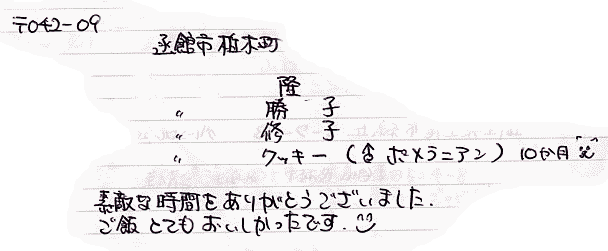 〒042-09
函館市柏木町
隆
〃 勝 子
〃 修 子
〃 クッキー (♂ ポメラニアン) 10か月
素敵な時間をありがとうございました.
ご飯とてもおいしかったです.